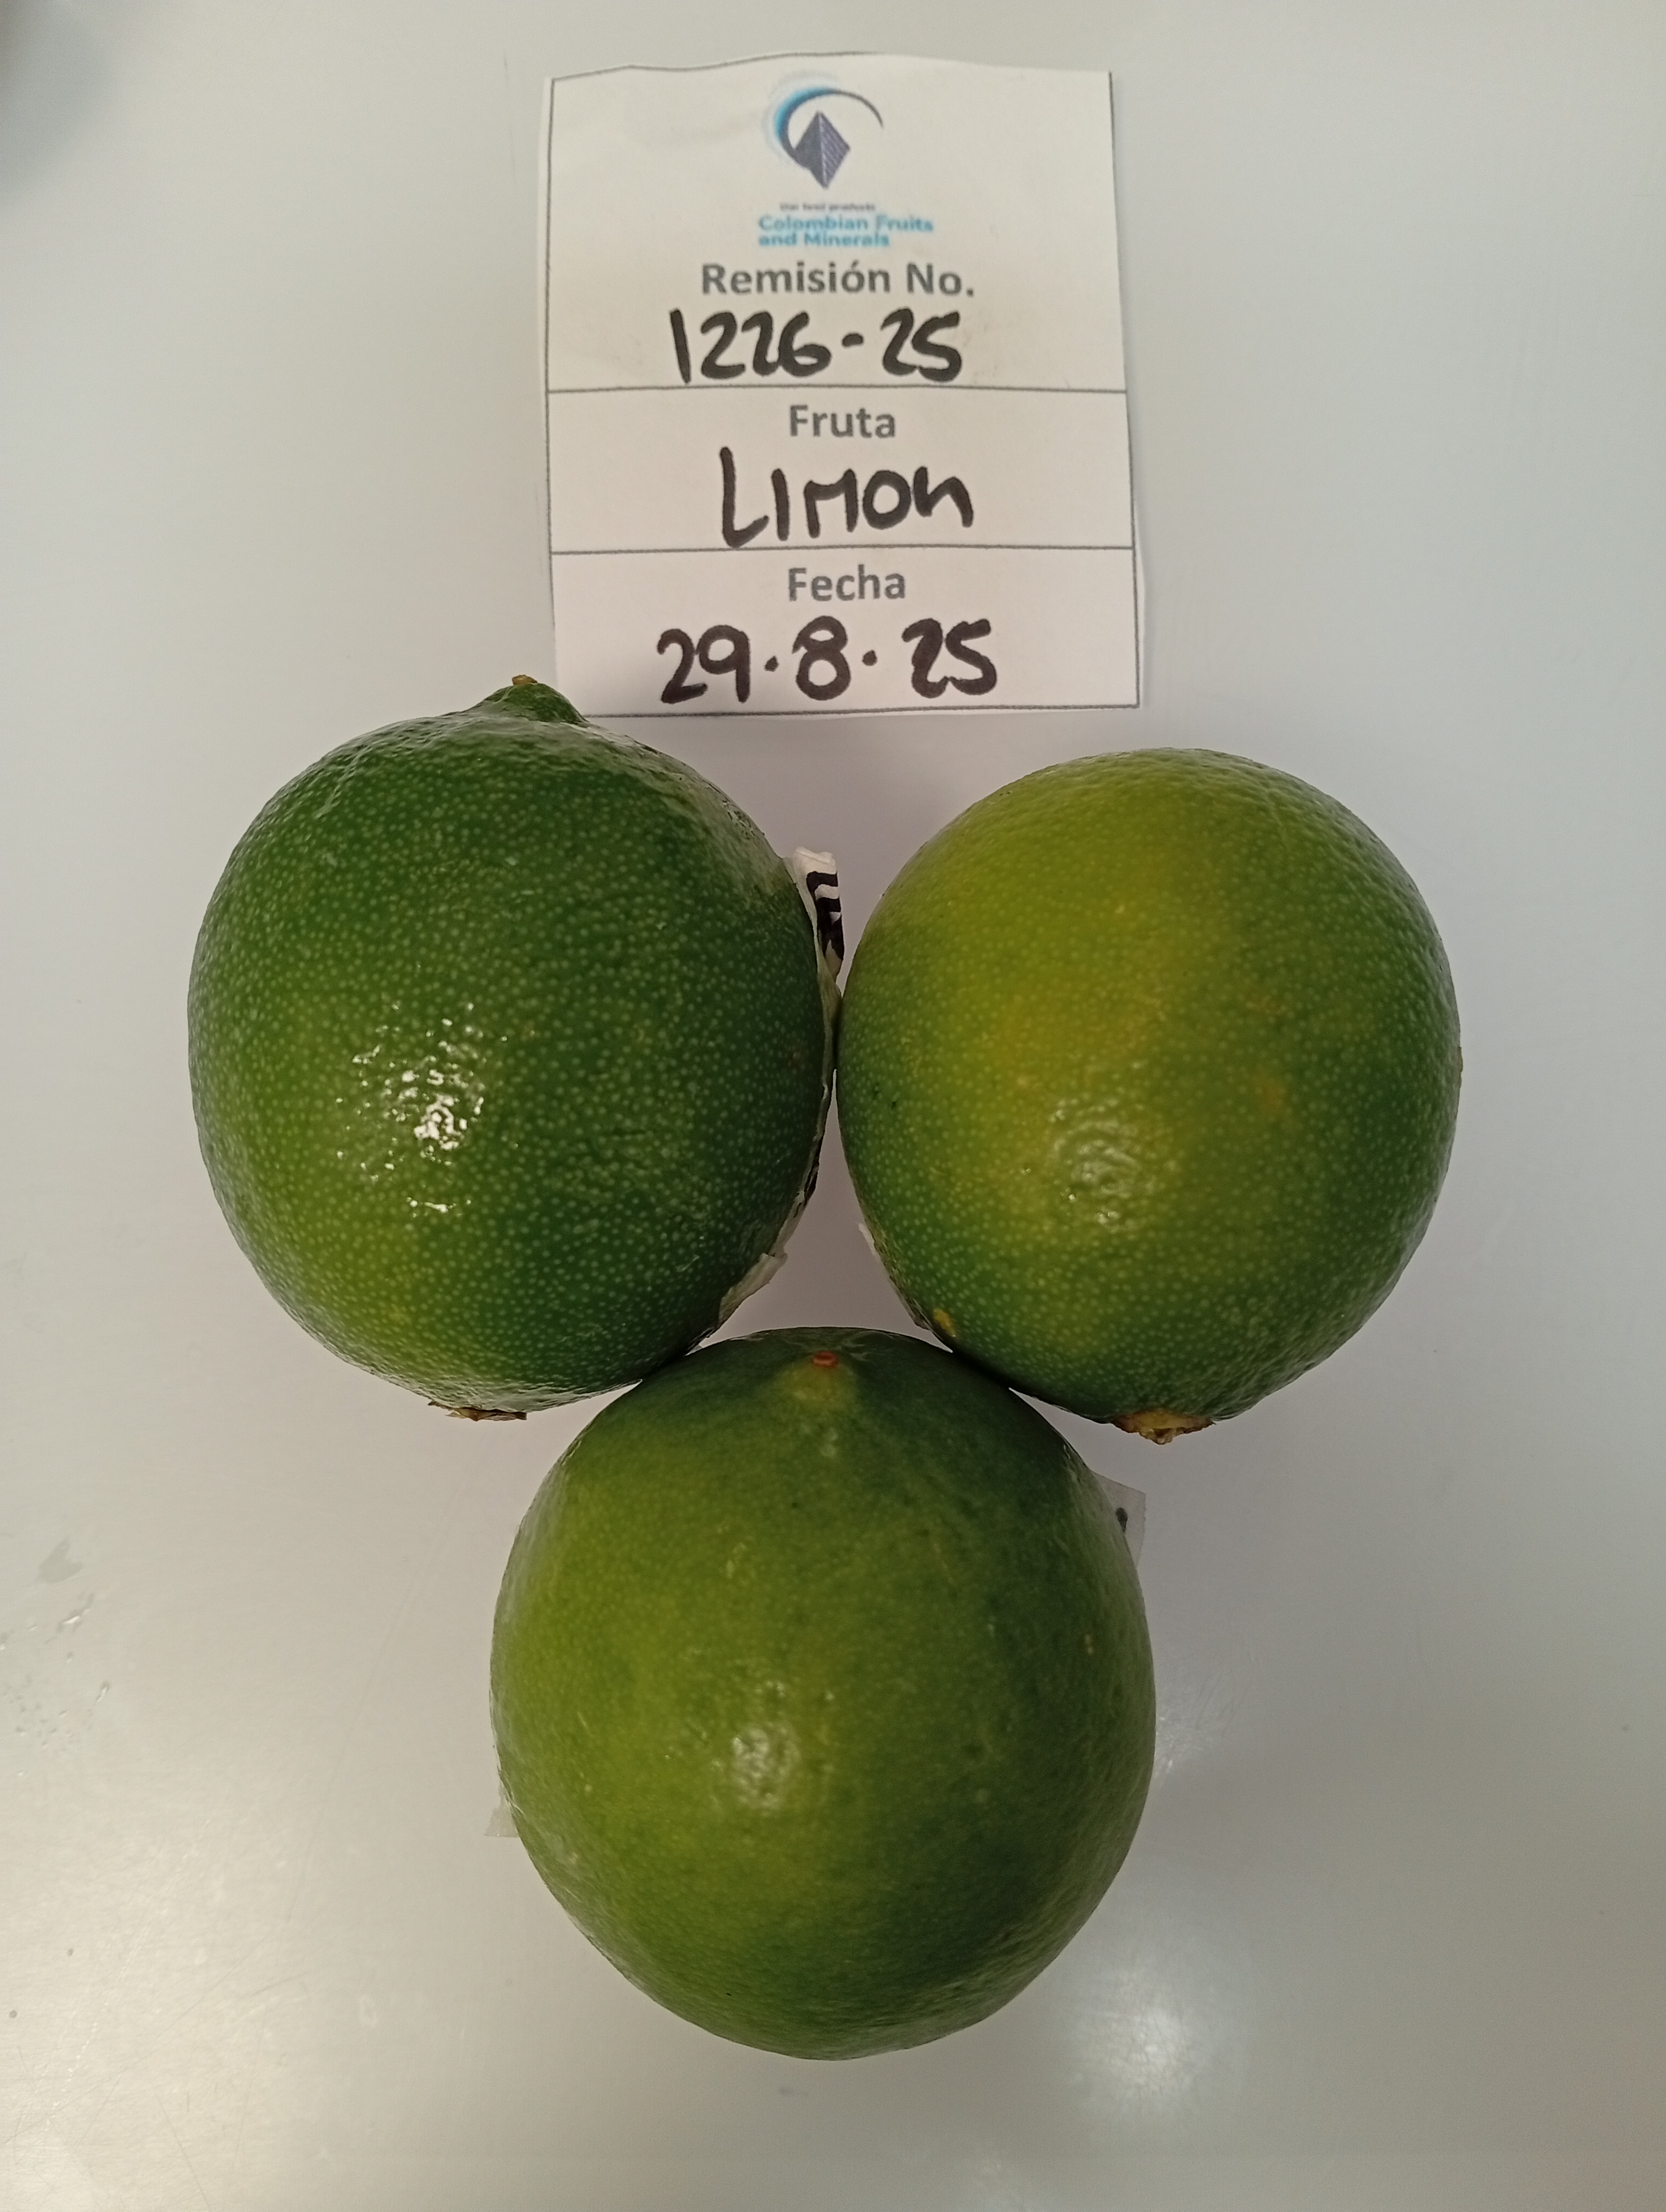 Our best products
Colombian Fruits
and Minerals
Remisión No.
1226-25
Fruta
LIMON
Fecha
29.8.25